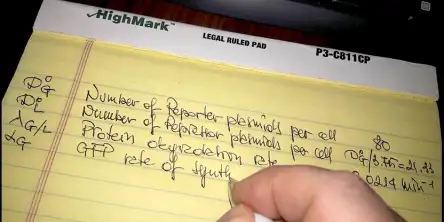 HighMark™
LEGAL RULED PAD P3-C811CP
D°G Number of Reporter plasmids per cell 80
D°L Number of Repressor plasmids per cell D°G/3.75=21.33
λG/L Protein degradation rate 0.0214 min⁻¹
αG GFP rate of synth